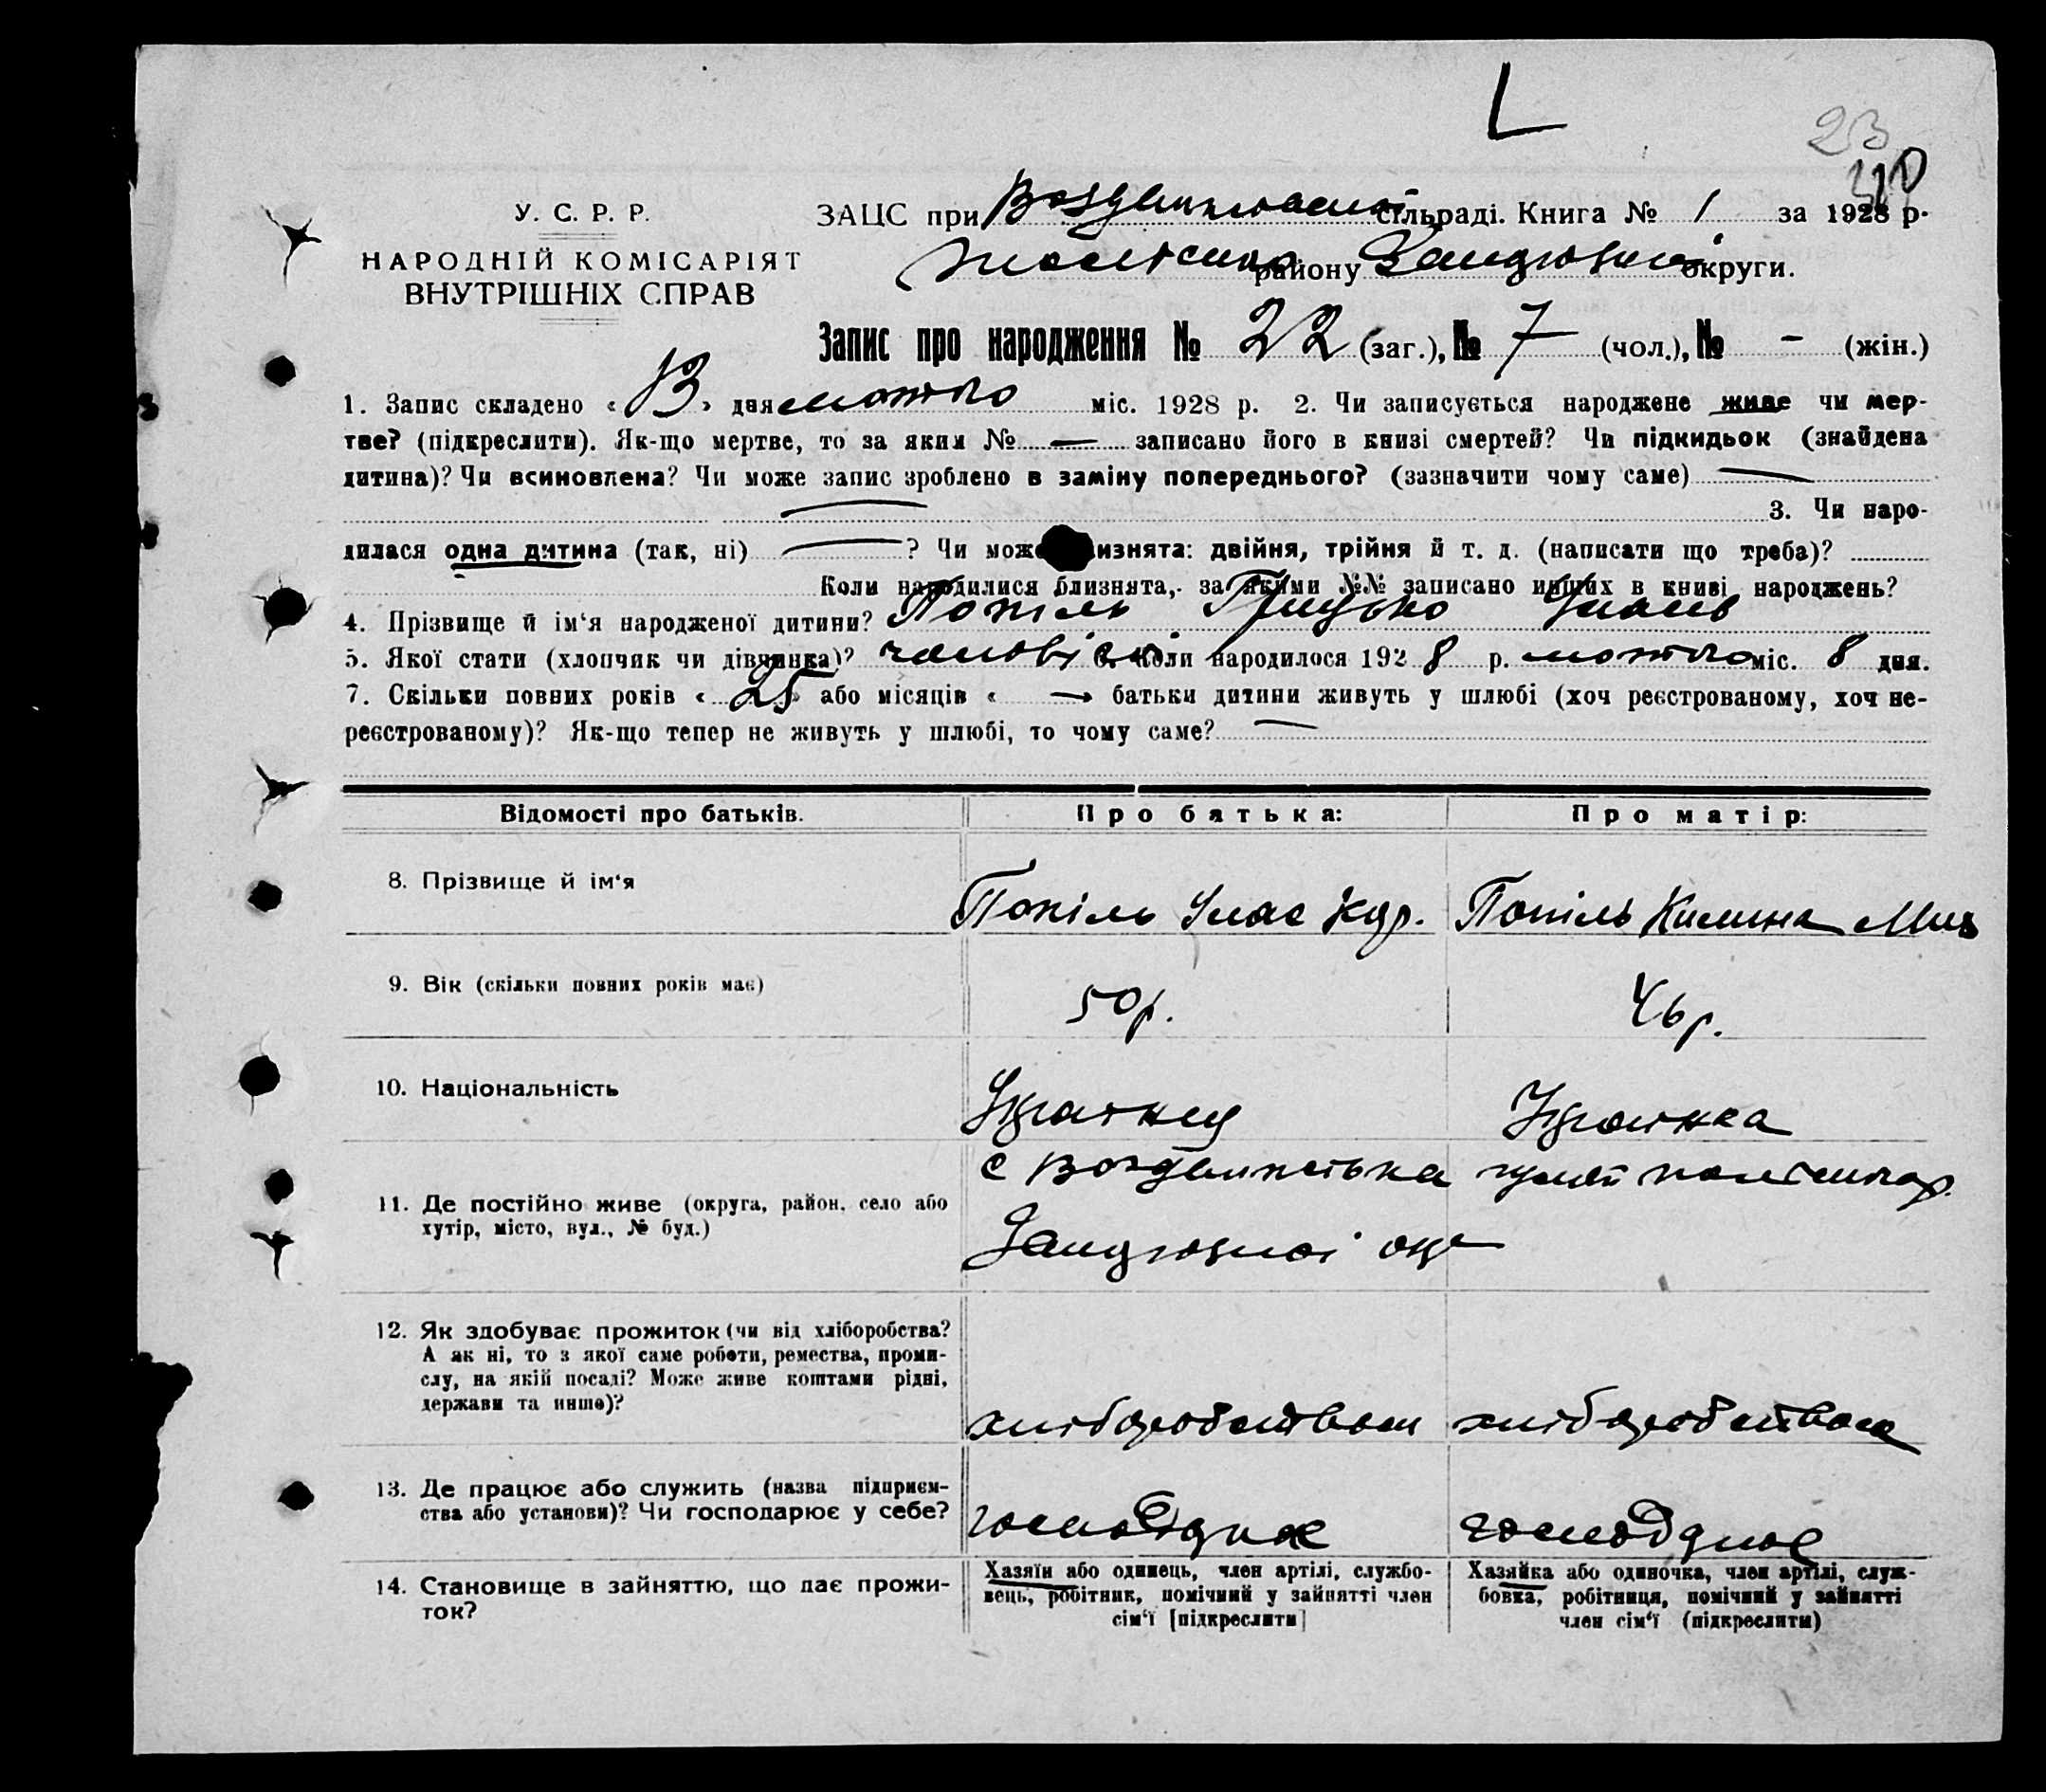 L
23
У. С. Р. Р.
НАРОДНІЙ КОМІСАРІЯТ
ВНУТРІШНІХ СПРАВ
ЗАЦС при сільраді. Книга № 1 за 1928 р.
району округи.
Запис про народження № 22 (заг.), № 7 (чол.), № - (жін.)
1. Запис складено « 13 » дня лютого міс. 1928 р. 2. Чи записується народжене живе чи мер-
тве? (підкреслити). Як-що мертве, то за яким № — записано його в книзі смертей? Чи підкидьок (знайдена
дитина)? Чи всиновлена? Чи може запис зроблено в заміну попереднього? (зазначити чому саме) —
— 3. Чи наро-
дилася одна дитина (так, ні) — ? Чи може изнята: двійня, трійня й т. д. (написати що треба)?
Коли народилися близнята, за якими №№ записано инших в книві народжень?
4. Прізвище й ім‘я народженої дитини? Попіль Грицько Улас
5. Якої стати (хлопчик чи дівчинка)? чоловічої 6. Коли народилося 1928 р. лютого міс. 8 дня.
7. Скільки повних років « 25 » або місяців « — батьки дитини живуть у шлюбі (хоч реєстрованому, хоч не-
реєстрованому)? Як-що тепер не живуть у шлюбі, то чому саме? —
Відомості про батьків. Про батька: Про матір:
8. Прізвище й ім‘я Попіль Улас Кдр. Попіль Килина
9. Вік (скільки повних років має) 50 р. 46 р.
10. Національність Українец Українка
11. Де постійно живе (округа, район, село або
хутір, місто, вул., № буд.)
с Воздвиженська
12. Як здобуває прожиток (чи від хліборобства?
А як ні, то з якої саме роботи, ремества, проми-
слу, на якій посаді? Може живе коштами рідні,
держави та инше)?
хліборобством хліборобством
13. Де працює або служить (назва підприєм-
ства або установи)? Чи господарює у себе?
14. Становище в зайняттю, що дає прожи-
ток?
Хазяїн або одинець, член артілі, службо-
вець, робітник, помічний у зайнятті член
сім‘ї [підкреслити]
Хазяйка або одиночка, член артілі, служ-
бовка, робітниця, помічний у зайнятті
член сім‘ї (підкреслити)